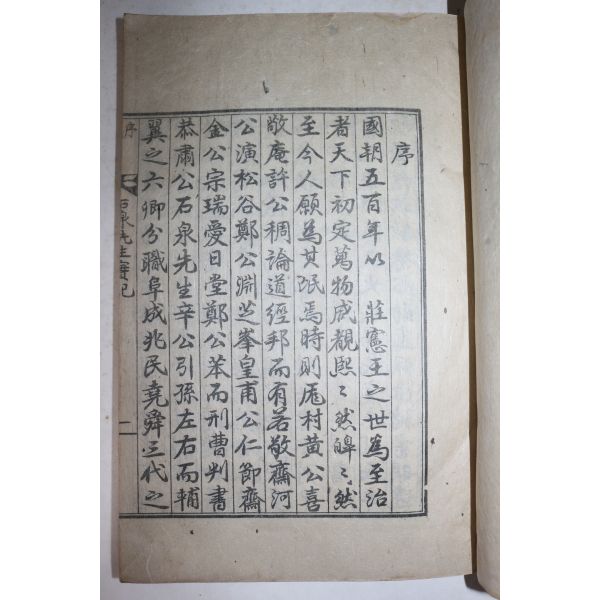 序
國朝五百年以 莊憲王之世為至治
者天下初定萬物咸覩熙〻然皥〻然
至今人願為其氓焉時則厖村黃公喜
敬庵許公稠論道經邦而有若敬齋河
公演松谷鄭公淵芝峯皇甫公仁節齋
金公宗瑞愛日堂鄭公苯而刑曹判書
恭肅公石泉先生辛公引孫左右而輔
翼之六卿分職阜成兆民堯舜三代之
序
石泉先生實記
一